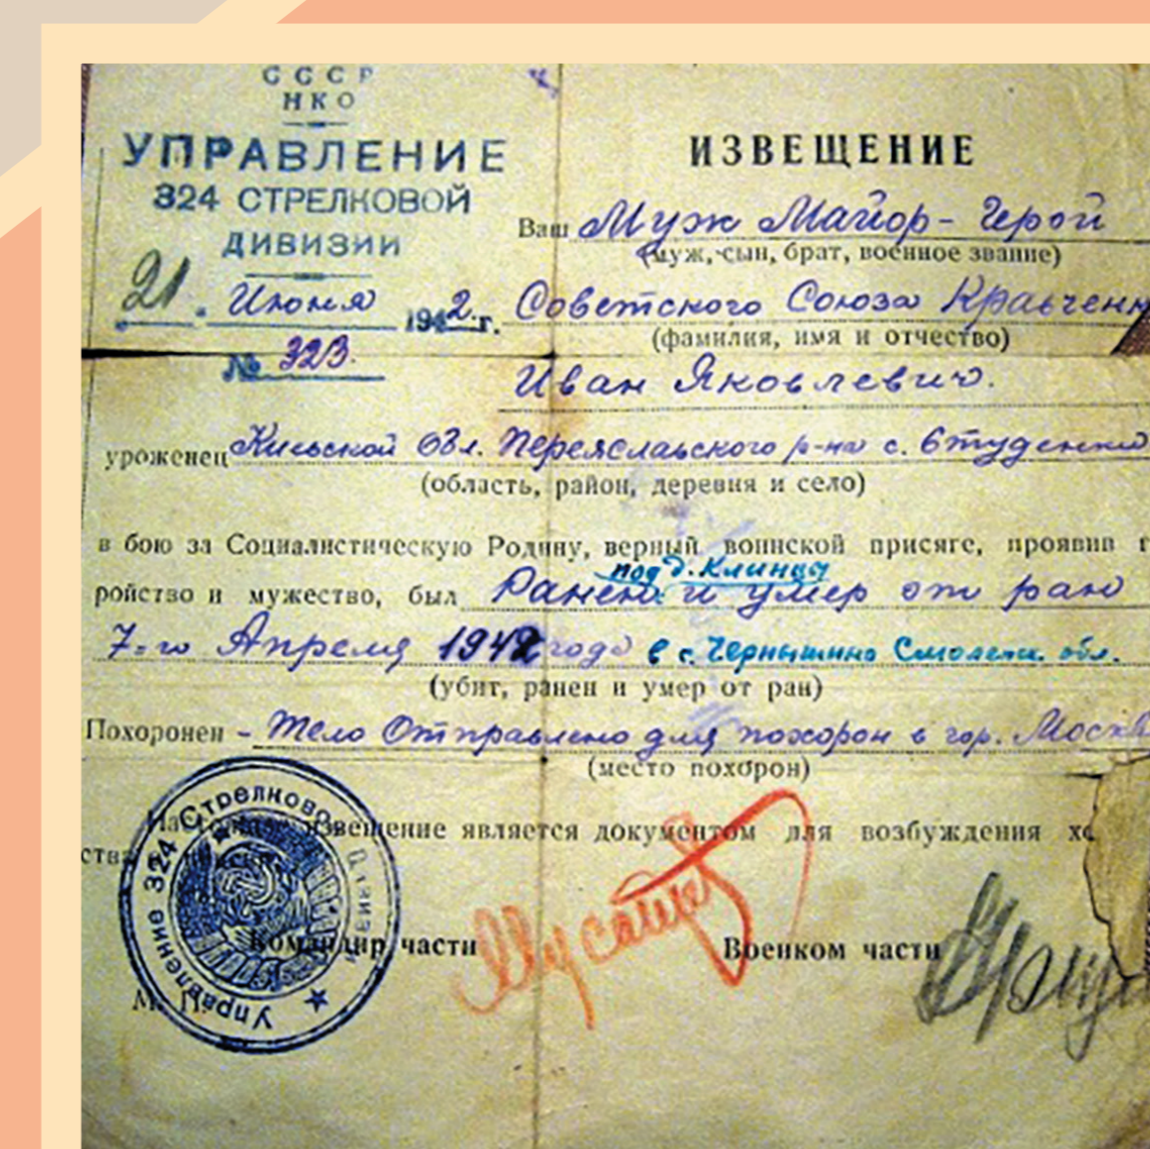 СССР
НКО
УПРАВЛЕНИЕ
324 СТРЕЛКОВОЙ
ДИВИЗИИ
21. Июня 1942.г.
№ 323.
ИЗВЕЩЕНИЕ
Ваш Муж Майор - Герой
(муж, сын, брат, военное звание)
Советского Союза Кравченк
(фамилия, имя и отчество)
Иван Яковлевич.
уроженец Киевской Обл. Переяславского р-на с.
(область, район, деревня и село)
в бою за Социалистическую Родину, верный воинской присяге, проявив г
под д. Клинцы
ройство и мужество, был Ранен и умер от ран
7-го Апреля 1942 года в с. Чернышино Смоленск. обл.
(убит, ранен и умер от ран)
Похоронен - Тело Отправлено для похорон в гор. Москв
(место похорон)
извещение является документом для возбуждения хо
ства
Командир части Военком части
М. П.
Управление 324 Стрелковой Дивизии